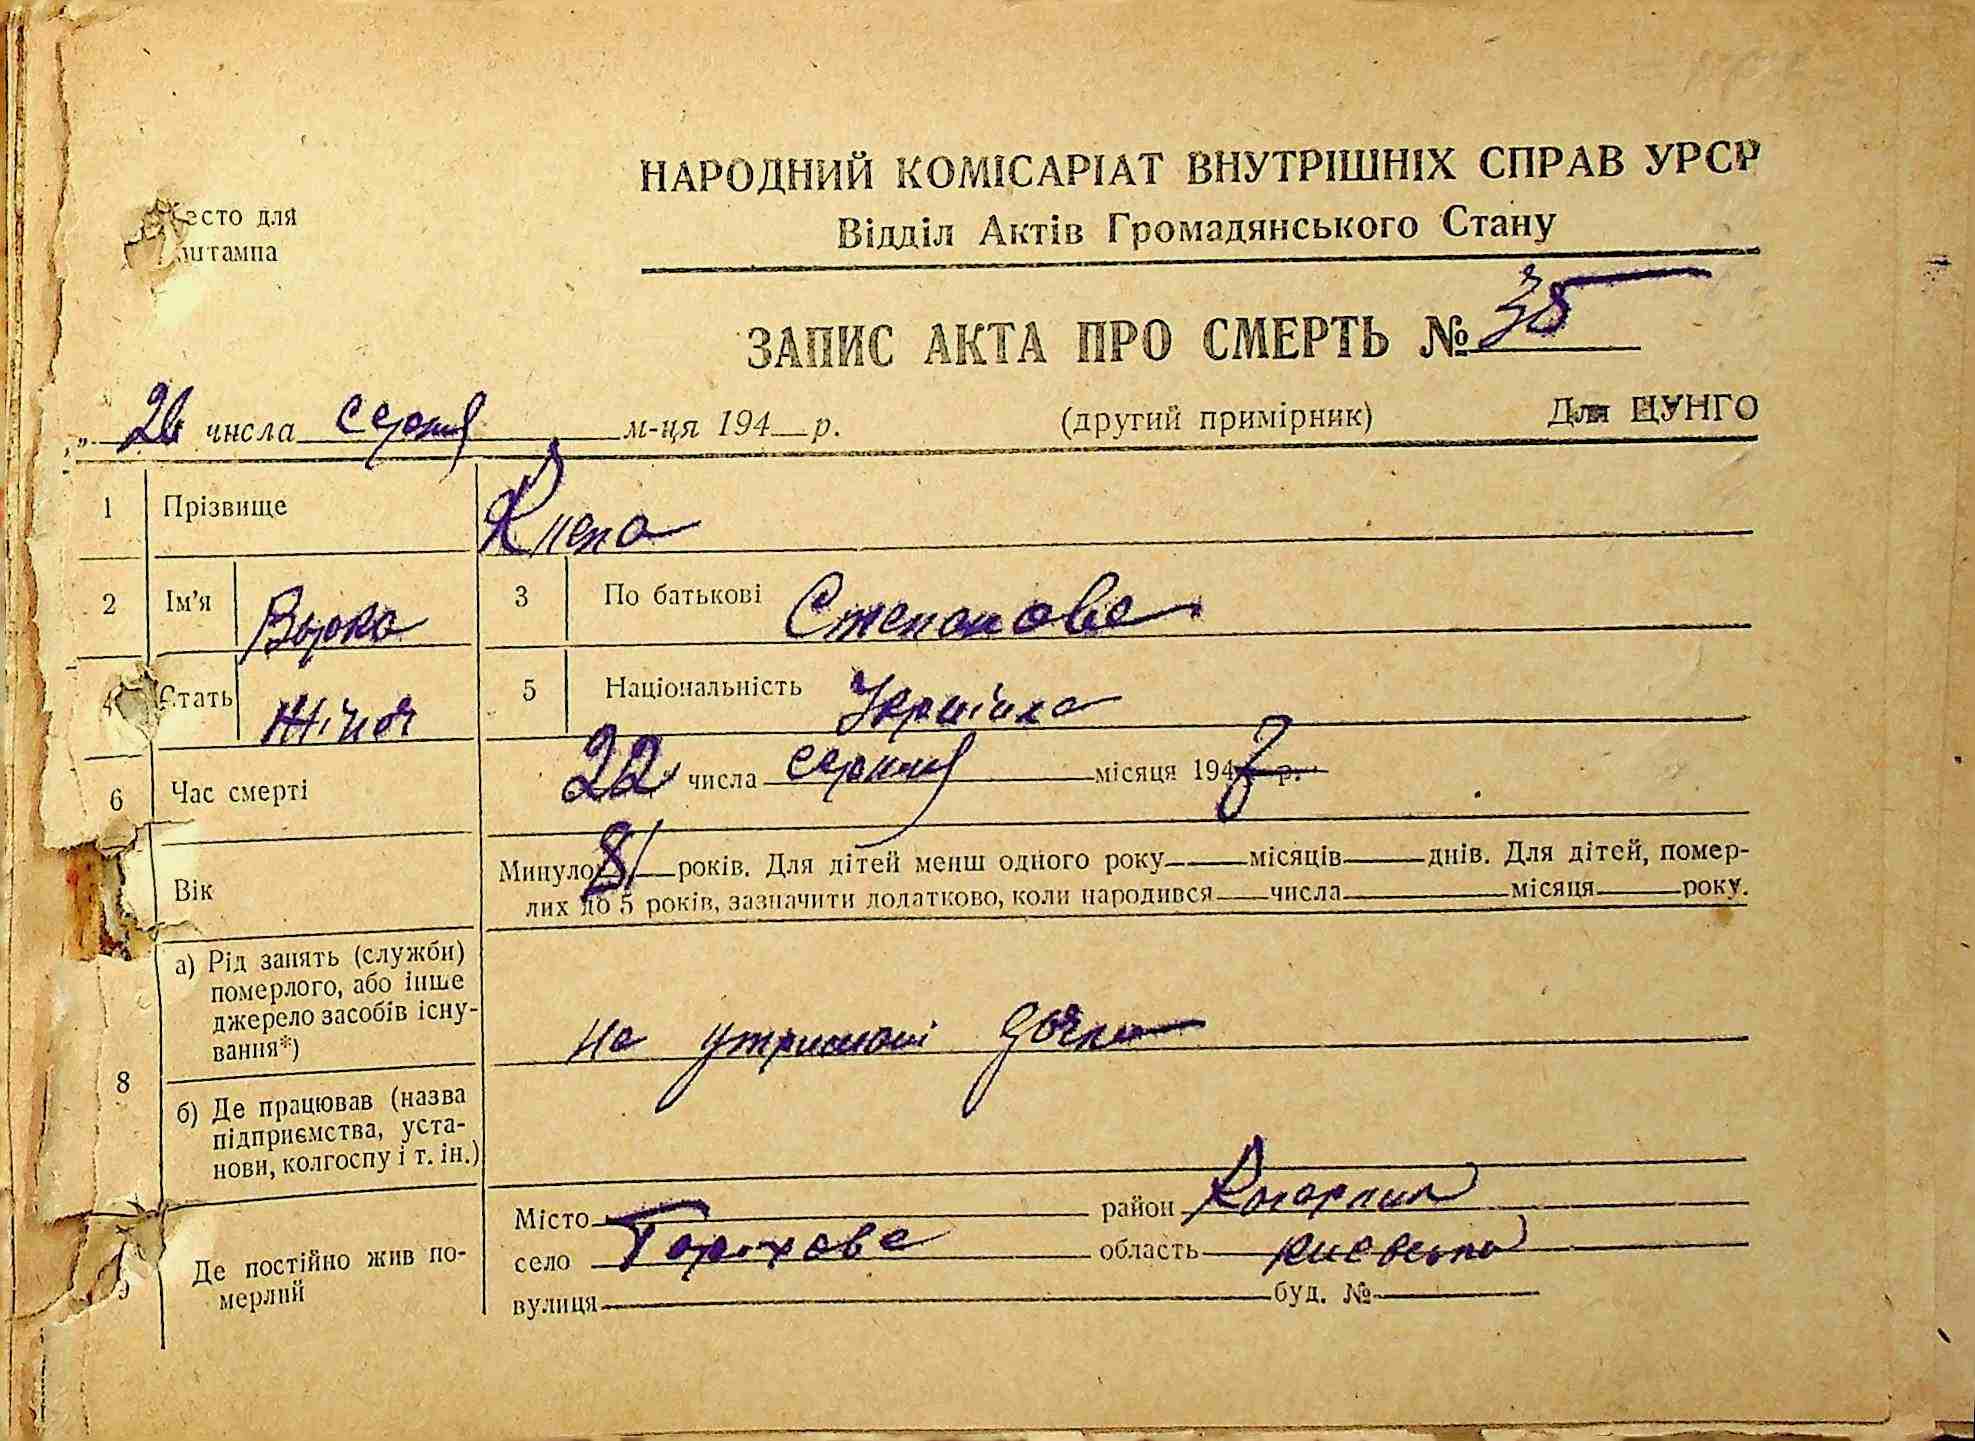 есто для
штампа
НАРОДНИЙ КОМІСАРІАТ ВНУТРІШНІХ СПРАВ УРСР
Відділ Актів Громадянського Стану
ЗАПИС АКТА ПРО СМЕРТЬ № 35
„ 26 числа серпня м-ця 194 р. (другий примірник) Для ЦУНГО
1 Прізвище
2 Ім'я 3 По батькові Степанова
4 Стать жіноч 5 Національність Українка
6 Час смерті 22 числа серпня місяця 1947 р.
Вік Минуло 81 років. Для дітей менш одного року місяців днів. Для дітей, помер-
лих до 5 років, зазначити додатково, коли народився числа місяця року.
8 а) Рід занять (служби)
померлого, або інше
джерело засобів існу-
вання*) на утриманні дочки
б) Де працював (назва
підприємства, уста-
нови, колгоспу і т. ін.)
9 Де постійно жив по-
мерлий
Місто район Кагарлик
село Горохове область Киевська
вулиця буд. №